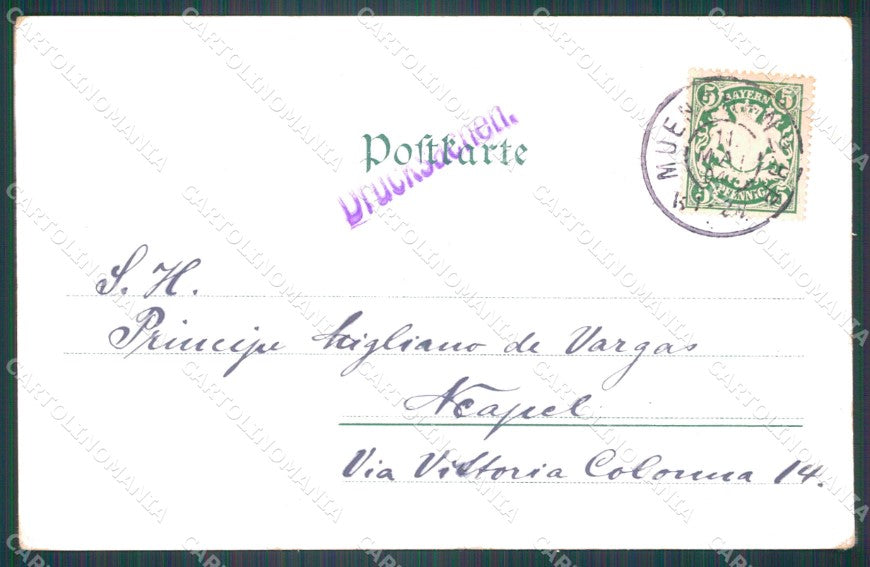 Postkarte
Drucksachen.
BAYERN
5 5
PFENNIG
MUEN
11.
MAI
S. H.
Principe Migliano de Vargas
Neapel
Via Vittoria Colonna 14.
CARTOLINOMANIA